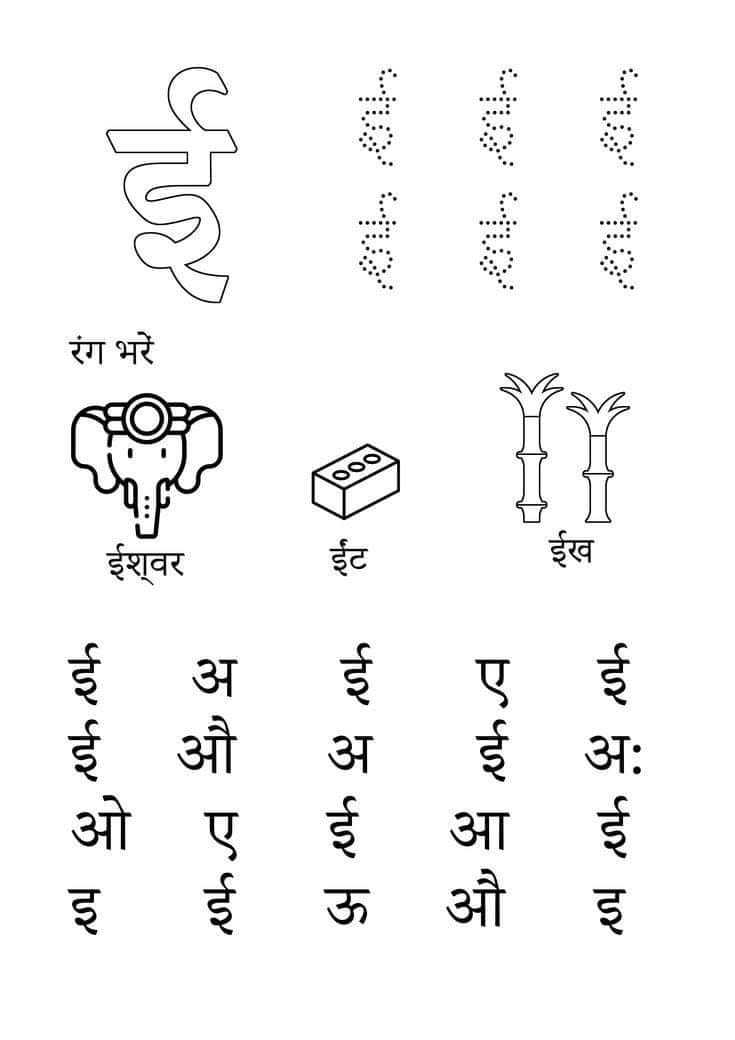 ई ई ई ई
ई ई ई
रंग भरें
ईश्‌वर ईंट ईख
ई अ ई ए ई
ई औ अ ई अः
ओ ए ई आ ई
इ ई ऊ औ इ